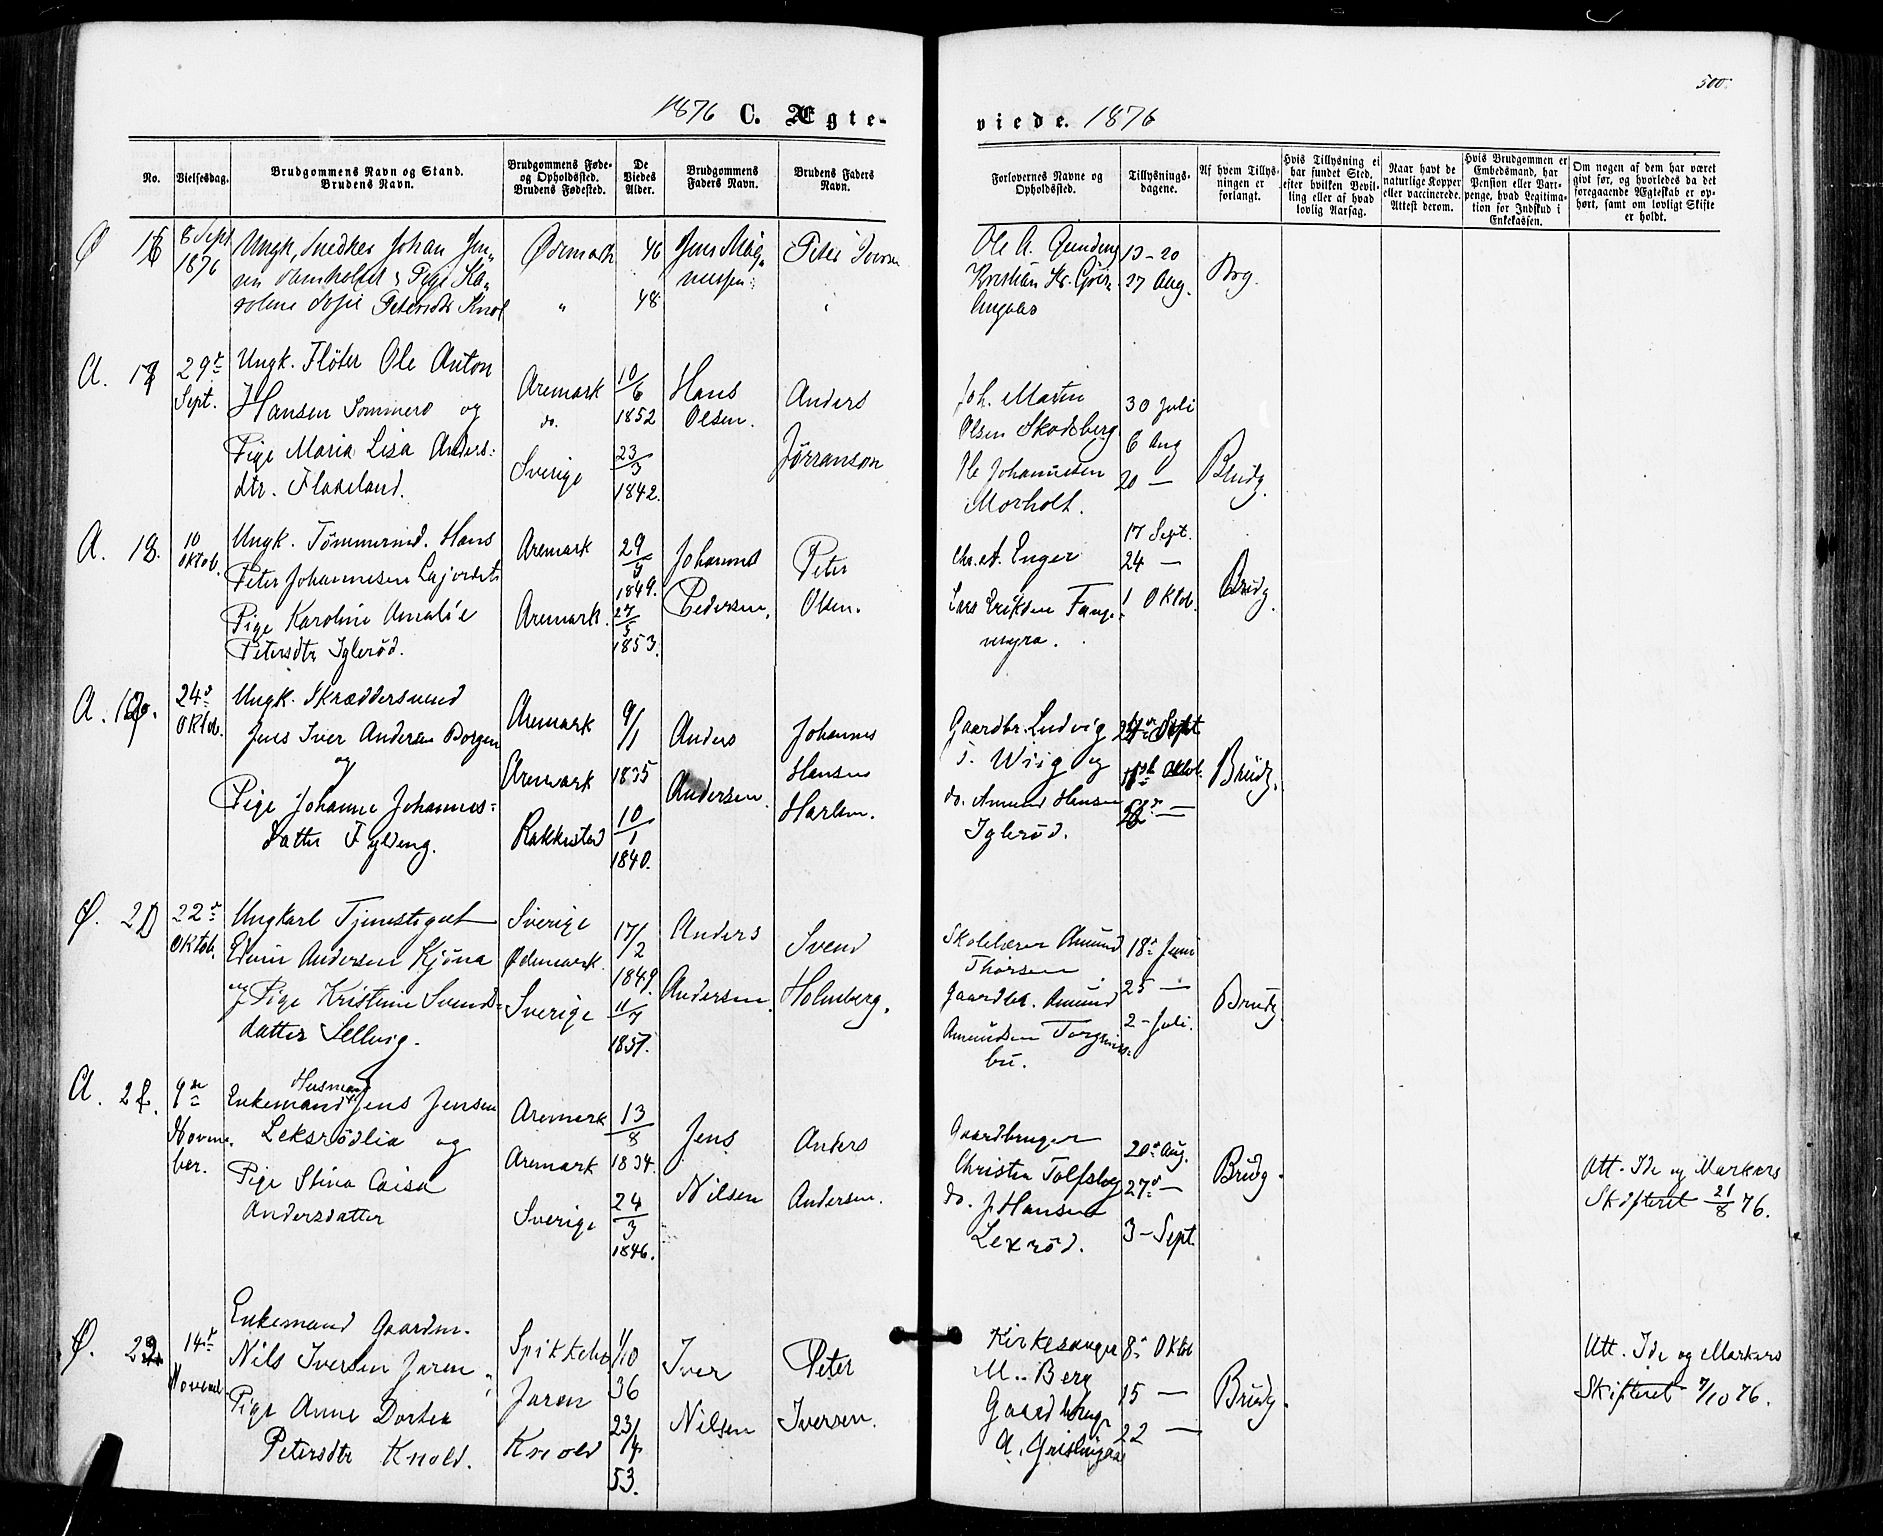 500.
1876 C. Ægte-
viede. 1876
No.
Vielsesdag.
Brudgommens Navn og Stand.
Brudens Navn.
Brudgommens Føde-
og Opholdssted.
Brudens Fødested.
De
Viedes
Alder.
Brudgommens
Faders Navn.
Brudens Faders
Navn.
Forlovernes Navne og
Opholdssted.
Tillysnings-
dagene.
Af hvem Tillys-
ningen er
forlangt.
Hvis Tillysning ei
har fundet Sted,
efter hvilken Bevil-
ling eller af hvad
lovlig Aarsag.
Naar havt de
naturlige Kopper
eller vaccinerede.
Attest derom.
Hvis Brudgommen er
Embedsmand, har
Pension eller Vart-
penge, hvad Legitima-
tion for Indskud i
Enkekassen.
Om nogen af dem har været
givt før, og hvorledes da det
foregaaende Ægteskab er op-
hørt, samt om lovligt Skifte
er holdt.
Ø 16
8 Sept
1876
Ungk. Snedker Johan Jen-
sen & Pige Ka-
roline Sofie Petersdtr Knol
46
" 48
Jens Mag-
nussen
Peter Iversen
Ole A.
Kristian
13-20
27 Aug.
Brg.
A. 17
29de
Sept.
Ungk. Fløter Ole Anton
Hansen Sommero og
Pige Maria Lisa Anders-
dtr. Flaxeland.
Aremark
do.
Sverige
10/6
1852
23/3
1842.
Hans
Olsen.
Anders
Jørranson
Joh. Martin
Olsen Skodsberg
Ole Johannesen
Morholt.
30 Juli
6 Aug
20 —
Brudg.
A. 18.
10
Oktob.
Ungk. Tømmermd. Hans
Peter Johannesen
Pige Karoline Amalie
Petersdtr Iglerød.
Aremark
Aremark.
29/9
1849.
27/5
1853.
Johannes
Pedersen,
Peter
Olsen.
Chr. A. Enger
Lars Eriksen Fange-
myra.
17 Sept.
24 —
1 Oktob.
Brudg.
A. 19.
24de
Oktob.
Ungk. Skræddersvend
Jens Iver Andersen Borgen
og
Pige Johanne Johannes-
datter Fylding.
Aremark
Aremark
Rakkestad
9/1
1835
10/1
1840.
Anders
Andersen.
Johannes
Hansen
Harlem.
Gaardbr. Ludvig
T. Wiig og
do. Amund Hansen
Iglerød.
24de Sept.
1ste Oktob.
8de —
Brudg.
Ø. 20
22de
Oktob.
Ungkarl Tjenestegut
Edvin Andersen Kjöna
og Pige Kristine Svends-
datter Sellvig.
Sverige
Ødemark.
Sverige
17/2
1849.
11/7
1857.
Anders
Andersen.
Svend
Holmberg.
Skolelærer Amund
Thorsen
Gaardbr. Amund
Amundsen Torgrims-
bu.
18de Juni
25 —
2 - Juli.
Brudg.
A. 21.
9de
Novem-
ber.
Husmand
Enkemand Jens Jensen
Leksrödlia og
Pige Stina Caisa
Andersdatter
Aremark
Aremark
Sverige
13/8
1834.
24/3
1846.
Jens
Nilsen
Anders
Andersen.
Gaardbruger
Christen Tolfsby
do. J. Hansen
Lexröd.
20de Aug.
27de —
3 - Sept.
Brudg.
Att. Ide og Markers
Skifteret 21/8 76.
Ø. 22
14de
Novemb.
Enkemand Gaardm.
Nils Iversen Jaren
Pige Anne Dortea
Petersdtr Knold.
Jaren
Knold
1/10
36
23/4
53.
Iver
Nilsen
Peter
Iversen.
Kirkesanger
M. Berg
Gaardbruger
A. Grislingaas
8de Oktob
15 —
22 —
Brudg.
Att. Ide og Markers
Skifteret 7/10 76.